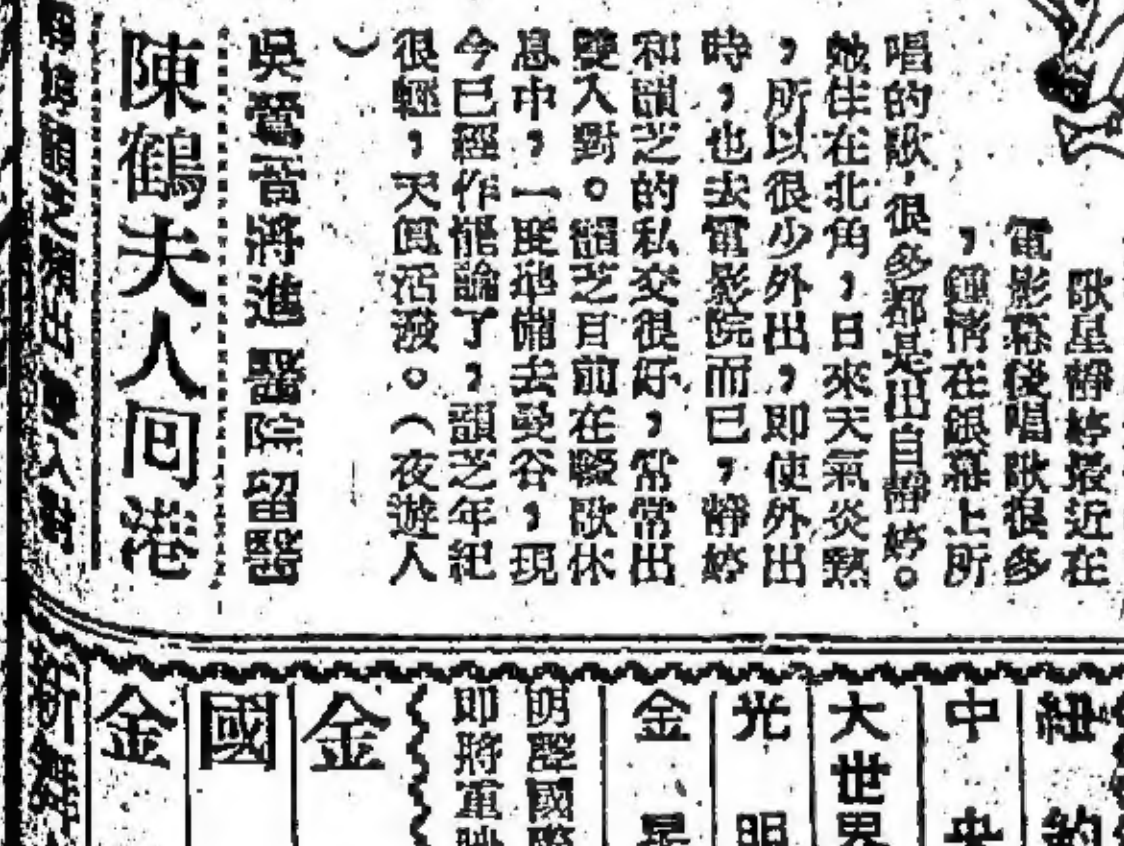 歌星靜婷最近在
電影幕後唱歌很多
,鍾情在銀幕上所
唱的歌,很多都是出自靜婷。
她住在北角,日來天氣炎熱
,所以很少外出,即使外出
時,也去電影院而已,靜婷
和韻芝的私交很好,常常出
雙入對。韻芝目前在輟歌休
息中,一度準備去曼谷,現
今已經作罷論了,韻芝年紀
很輕,天真活潑。(夜遊人
)
吳鶯音將進醫院留醫
陳鶴夫人回港
紐約
中央
大世界
光明
金星
明星國際
即將重映
金
國
金